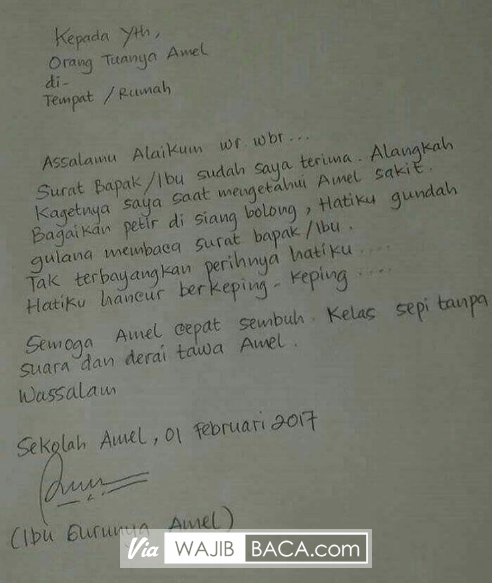 Kepada Yth,
Orang Tuanya Amel
di-
Tempat / Rumah
Assalamu Alaikum wr wbr...
Surat Bapak/Ibu sudah saya terima. Alangkah
Kagetnya saya saat mengetahui Amel sakit.
Bagaikan petir di siang bolong, Hatiku gundah
gulana membaca surat bapak/Ibu.
Tak terbayangkan perihnya hatiku....
Hatiku hancur berkeping-keping....
Semoga Amel cepat sembuh. Kelas sepi tanpa
suara dan derai tawa Amel.
Wassalam
Sekolah Amel, 01 Februari 2017
(Ibu Gurunya Amel)
Via WAJIB BACA.com